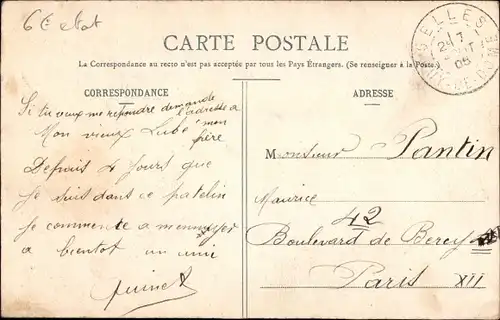 6E etat
CARTE POSTALE
La Correspondance au recto n'est pas acceptée par tous les Pays Étrangers. (Se renseigner à la Poste.)
CORRESPONDANCE
Si tu veux me repondre demande
l'adresse a
mon
frère
Mon vieux Lubé
Depuis 4 jours que
Je suis dans ce patelin
je commence a mennuyer
a bientot un ami
ADRESSE
Monsieur Pantin
Maurice
42
Boulevard de Bercy
Paris XII
ELLES
24 7
05
PUY-DE-DOME